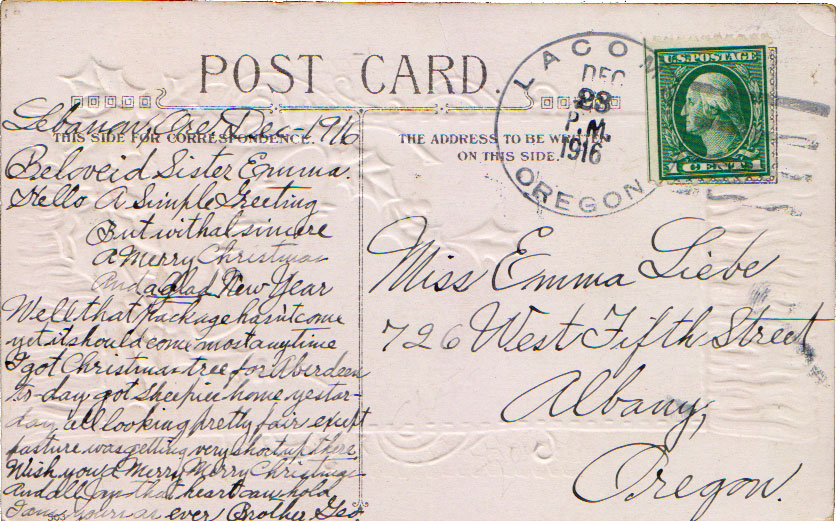 POST CARD.
THIS SIDE FOR CORRESPONDENCE.
THE ADDRESS TO BE
ON THIS SIDE.
LACOM
DEC
23
P.M.
1916
OREGON
U.S. POSTAGE
1 CENT 1
Lebanon, Ore. Dec - 1916
Beloveid Sister Emma.
Hello A Simple Greeting
But withal sincere
A Merry Christmas
And a glad New Year
Well that package hasn't come
yet it should come most anytime
I got Christmas tree for Aberdeen
to-day got sheepies home yestar-
day all looking pretty fair except
pasture was getting very short up there.
Wish you a Merry Merry Christmas
And all Joys that heart can hold
I am yours as ever Brother Geo.
Miss Emma Liebe
726 West Fifth Street
Albany,
Oregon.